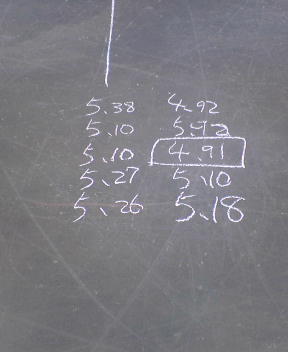 5.38 4.92
5.10
5.10 4.91
5.27 5.10
5.26 5.18